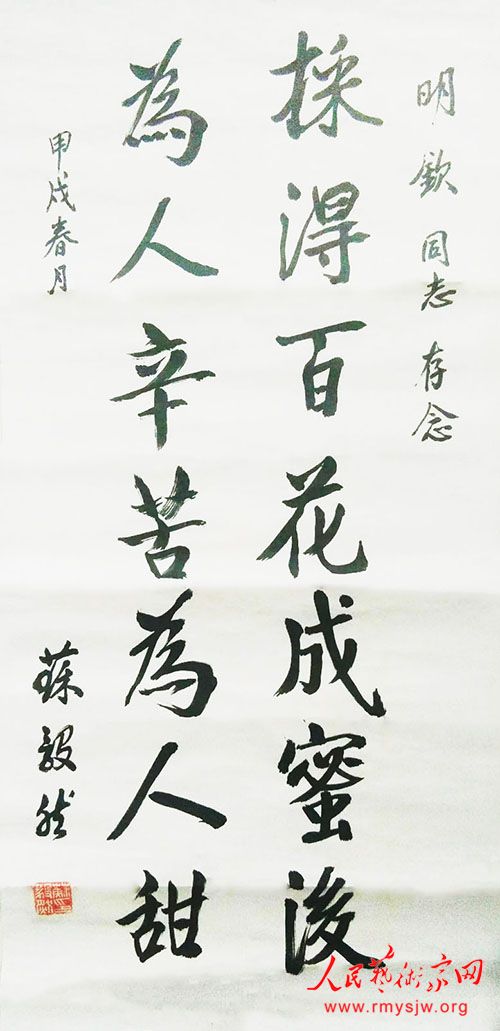 明欽同志存念
採得百花成蜜後
為人辛苦為人甜
甲戌春月
蘇毅然
人民藝術家网
www.rmysjw.org